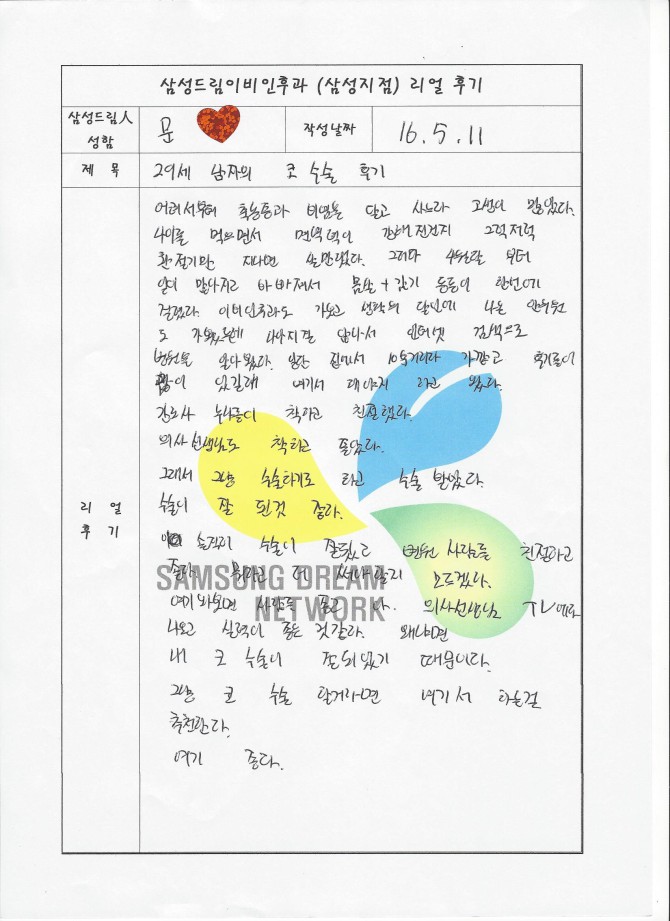 삼성드림이비인후과 (삼성지점) 리얼 후기
삼성드림人
성함
문
작성날짜
16. 5. 11
제 목
29세 남자의 코 수술 후기
어려서부터 축농증과 비염을 달고 사느라 고생이 많았다.
나이를 먹으면서 면역력이 강해진건지 그럭저럭
환절기만 지나면 살만했다. 그러다 4월달 부터
일이 많아지고 바빠져서 몸살 + 감기 등등이 한번에
걸렸다. 이비인후과도 가보고 번화가 당인에 나온
도 가봤는데 나아지질 않아서 인터넷 검색으로
병원을 알아봤다. 일단 집에서 10분거리라 가깝고 후기들이
많이 있길래 여기서 해야지 라고 왔다.
간호사 누나들이 착하고 친절했다.
의사선생님도 착하고 좋았다.
그래서 그냥 수술하기로 하고 수술 받았다.
수술이 잘 된것 좋다.
솔직히 수술이 잘됐고 병원 사람들 친절하고
좋다. 뭐라고 더 써야할지 모르겠다.
여기 와보면 사람들 좋고 의사선생님 TV에도
나오고 실력이 좋은 것같다. 왜냐하면
내 코 수술이 잘되었기 때문이다.
그냥 코 수술 할거라면 여기서 하는걸
추천한다.
여기 좋다.
리 얼
후 기
SAMSUNG DREAM
NETWORK